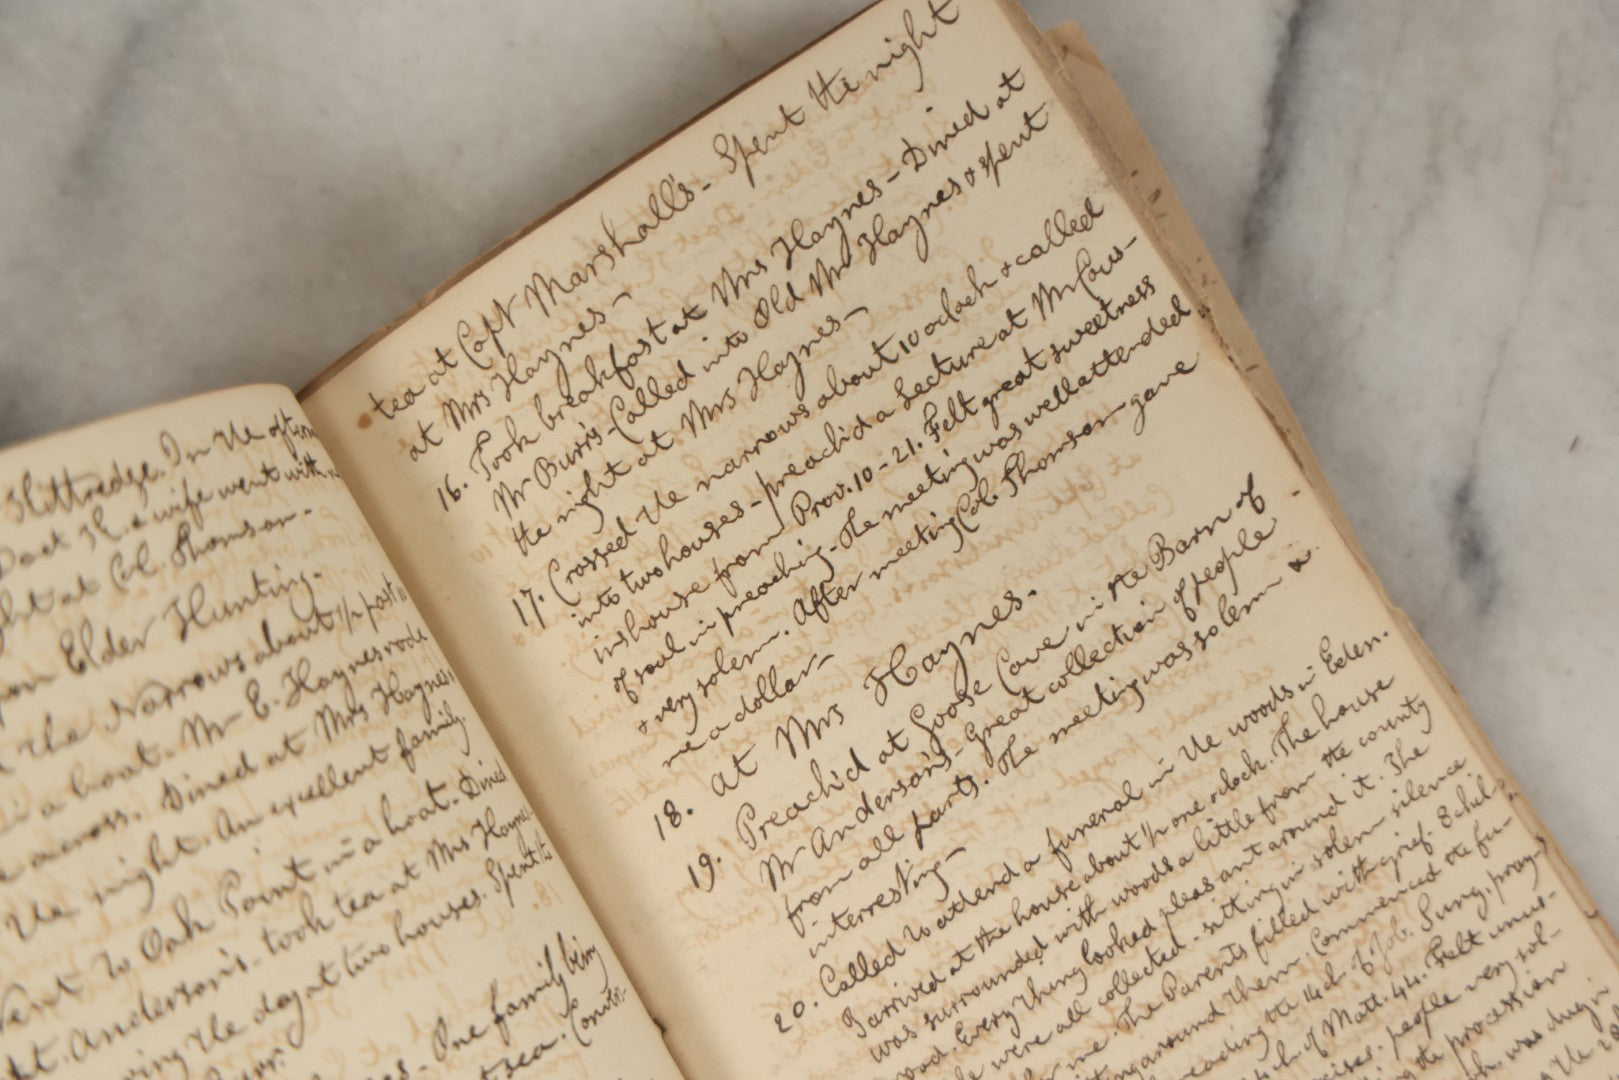 Kittredge. In the aftern
Dack Th. & wife went with
ght at Col. Thomson.
Elder Hunting.
the Narrows about 1/2 past
a boat. Mr E. Haynes rode
across. Dined at Mrs Haynes.
the night. An excellent family.
Went to Oak Point in a boat. Dined
at Mr. Anderson's. took tea at Mrs Haynes
the day at two houses. Spent the
One family being
tea at Capt Marshall's - Spent the night
at Mrs Haynes -
16. Took breakfast at Mrs Haynes - Dined at
Mr Burris - Called into Old Mr Haynes & spent
the night at Mrs Haynes -
17. Crossed the narrows about 10 oclock & called
into two houses - preach'd a Lecture at Mr Cous-
ins house from Prov. 10 - 21. Felt great sweetness
of soul in preaching. The meeting was well attended
& very solemn. After meeting Col. Thomson gave
me a dollar -
18. At Mrs Haynes.
19. Preach'd at Goose Cove in the Barn of
Mr Anderson's - Great collection of people
from all parts. The meeting was solemn &
interresting -
20. Called to attend a funeral in the woods in Eden.
I arrived at the house about 1/2 one oclock. The house
was surrounded with woods a little from the county
road. Every thing looked pleasant around it. The
were all collected - sitting in solem silence
me. The Parents filled with grief. 8 chil-
around them. Commenced the fu-
reading the 14ch. of Job. Sung, prayed
of Matt. 44. Felt unus-
people very sol-
the procession
was dug in